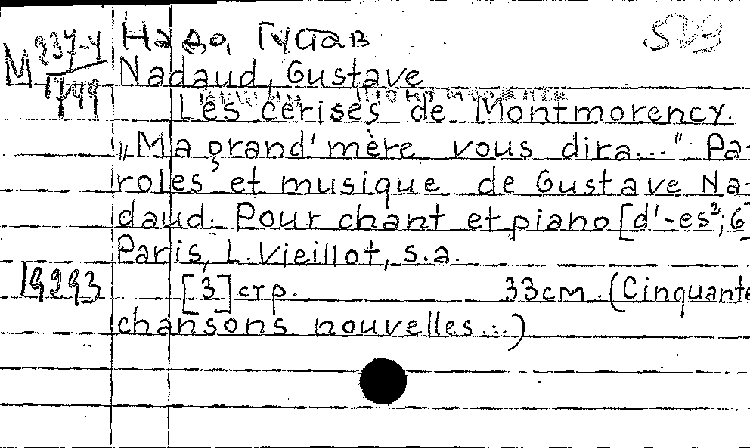 М 237-4/1749
Надо, Густав
529
Nadaud, Gustave
Les cerises de Montmorency.
„Ma grand'mère vous dira..." Pa-
roles et musique de Gustave Na-
daud. Pour chant et piano [d'-es²; 6]
Paris, L. Vieillot, s.a.
19293 [3] стр. 33 см. (Cinquante
chansons nouvelles...)